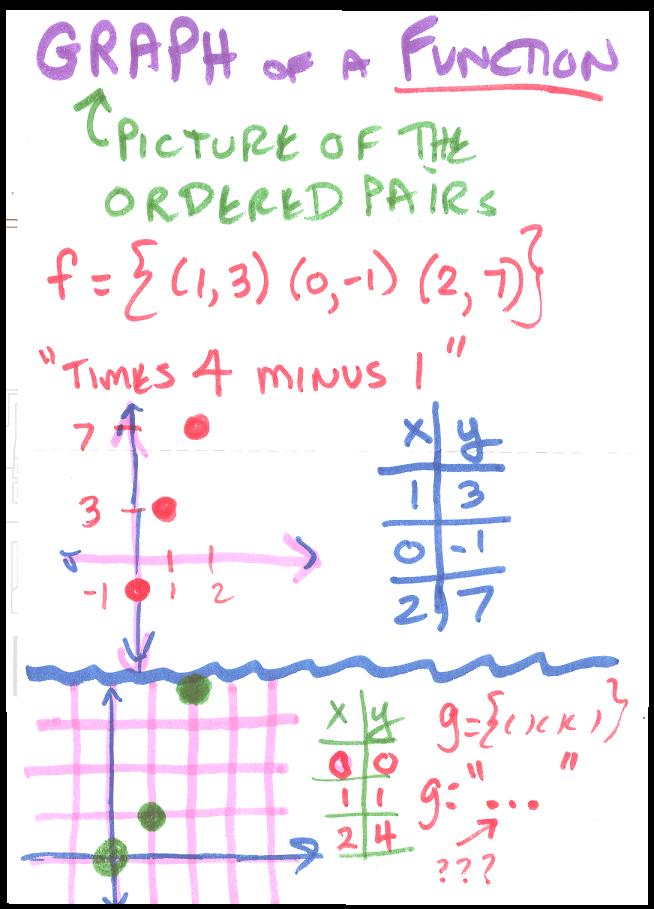 GRAPH OF A FUNCTION
PICTURE OF THE
ORDERED PAIRS
f = {(1,3) (0,-1) (2,7)}
"TIMES 4 MINUS 1"
7
3
-1 1 2
x y
1 3
0 -1
2 7
x y
0 0
1 1
2 4
g={( )( )( )}
g="..."
???